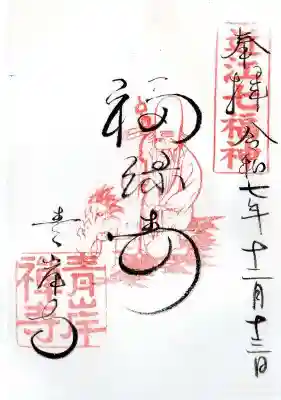 近江七福神
奉拝 令和七年十二月十三日
福禄寿
青岸寺
青岸
禅寺